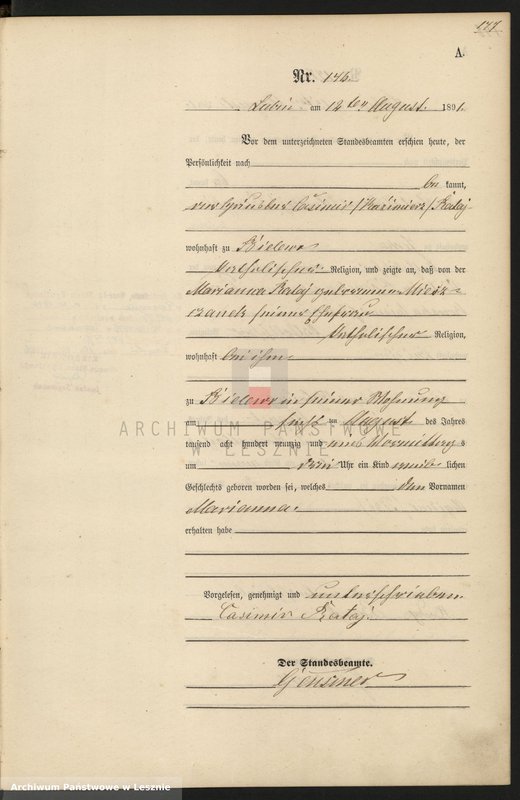 177
A.
Nr. 176.
Lubin am 12ten August 1891.
Vor dem unterzeichneten Standesbeamten erschien heute, der
Persönlichkeit nach
be kannt,
der Casimir /Kazimierz/ Rataj
wohnhaft zu Bielewo
katholischer Religion, und zeigte an, daß von der
Marianna Rataj geborenen Miesz-
czanek seiner Ehefrau
katholischer Religion,
wohnhaft bei ihm
zu Bielewo in seiner Wohnung
am ten August des Jahres
tausend acht hundert neunzig und eins Vormittag s
um drei Uhr ein Kind weib lichen
Geschlechts geboren worden sei, welches den Vornamen
Marianna
erhalten habe
Vorgelesen, genehmigt und unterschrieben
Casimir Rataj.
Der Standesbeamte.
ARCHIWUM PAŃSTWOWE
W LESZNIE
Archiwum Państwowe w Lesznie